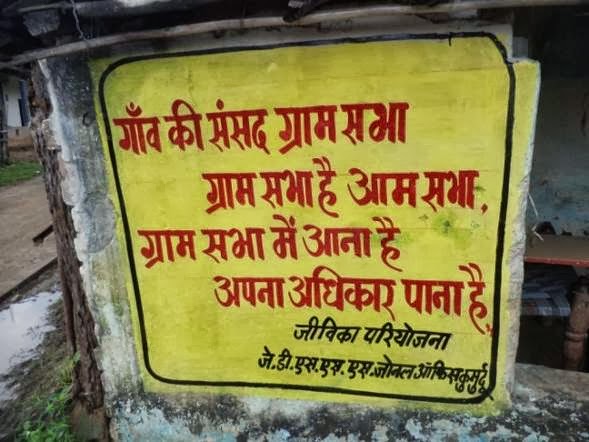 गाँव की संसद ग्राम सभा
ग्राम सभा है आम सभा,
ग्राम सभा में आना है
अपना अधिकार पाना है,
जीविका परियोजना
जे.डी.एस.एस.एस.जोनल ऑफिस कुमुर्दु